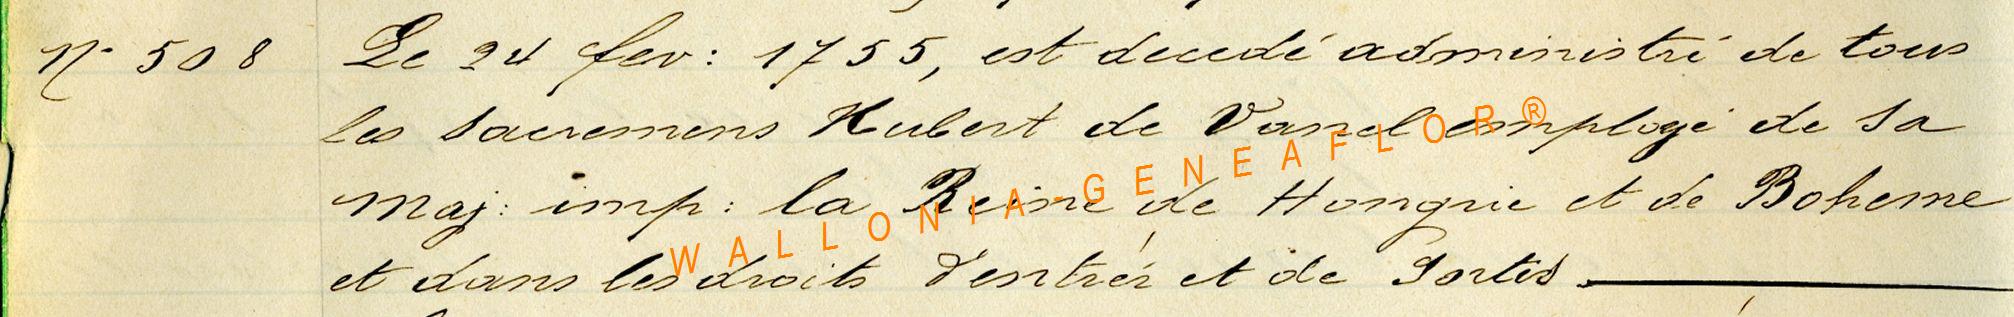 N° 508 Le 24 fev: 1755, est decedé administré de tous
les sacremens Hubert de Vanel employé de sa
Maj: imp: la Reine de Hongrie et de Boheme
et dans les droits d'entrée et de Sortis.
WALLONIA-GENEAFLOR®